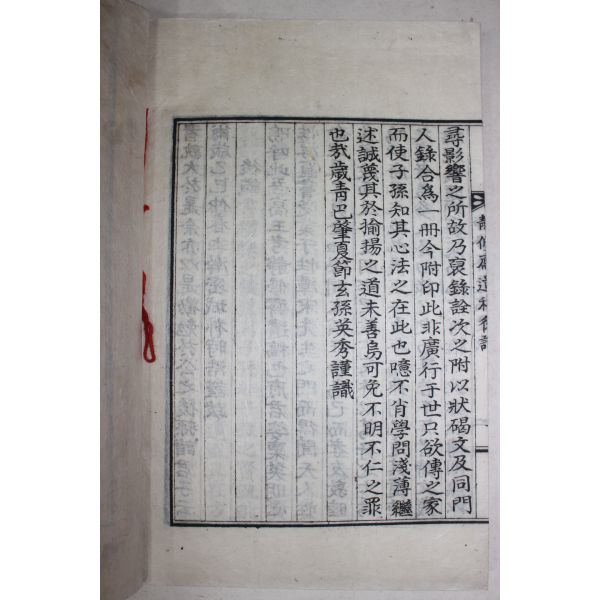 尋影響之所故乃裒錄詮次之附以狀碣文及同門
人錄合爲一冊今附印此非廣行于世只欲傳之家
而使子孫知其心法之在此也噫不肖學問淺薄繼
述誠蔑其於揄揚之道未善烏可免不明不仁之罪
也哉歲靑巴肇夏節玄孫英秀謹識
遺稿後識